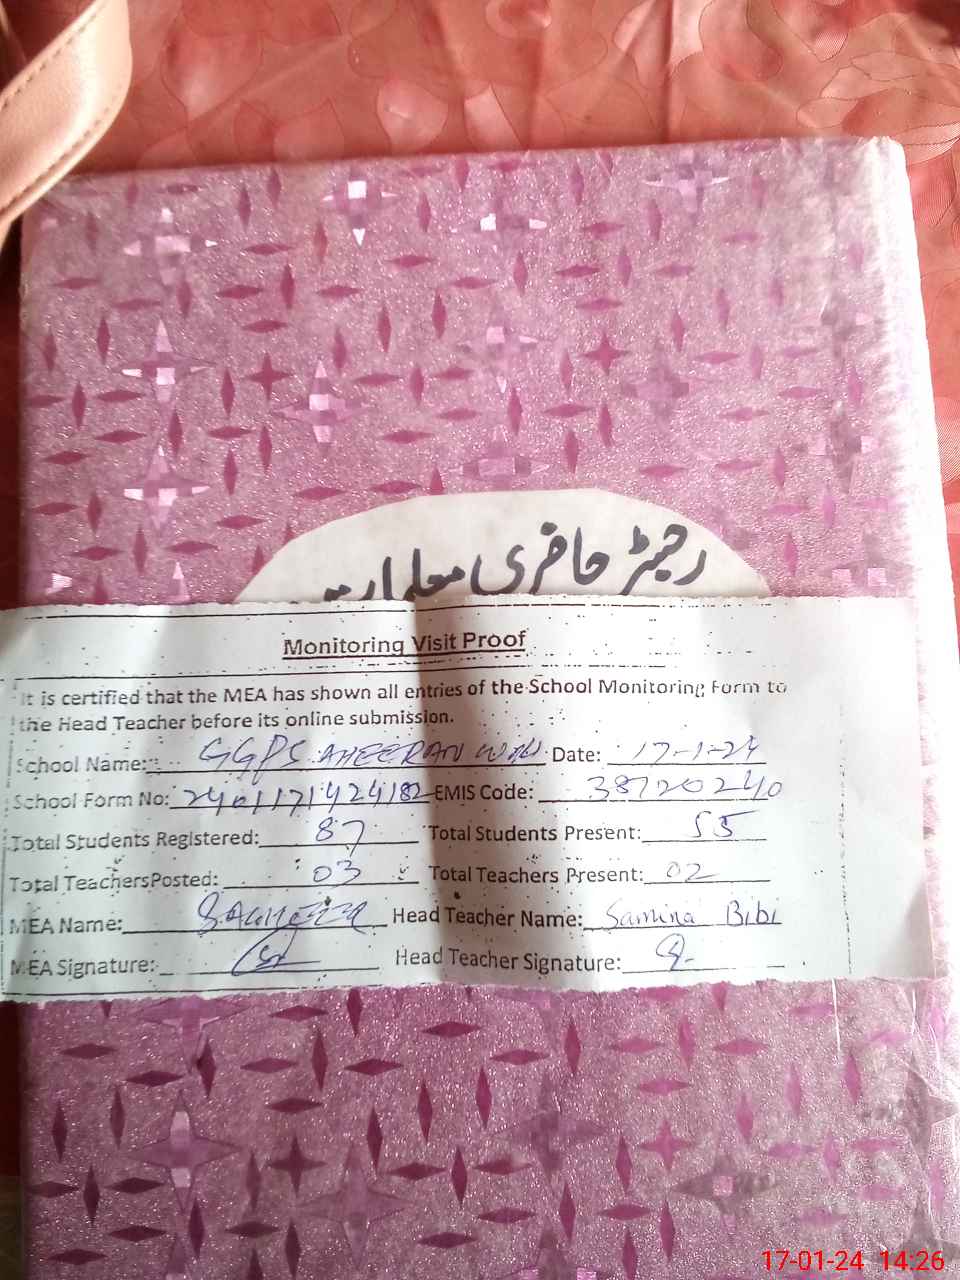 رجسٹر حاضری معلمات
Monitoring Visit Proof
It is certified that the MEA has shown all entries of the School Monitoring Form to
the Head Teacher before its online submission.
School Name: GGPS AHEERAN Date: 17-1-24
School Form No: 2401171424182 EMIS Code: 38720240
Total Students Registered: 87 Total Students Present: 55
Total TeachersPosted: 03 Total Teachers Present: 02
MEA Name: Head Teacher Name: Samina Bibi
MEA Signature: Head Teacher Signature:
17-01-24 14:26